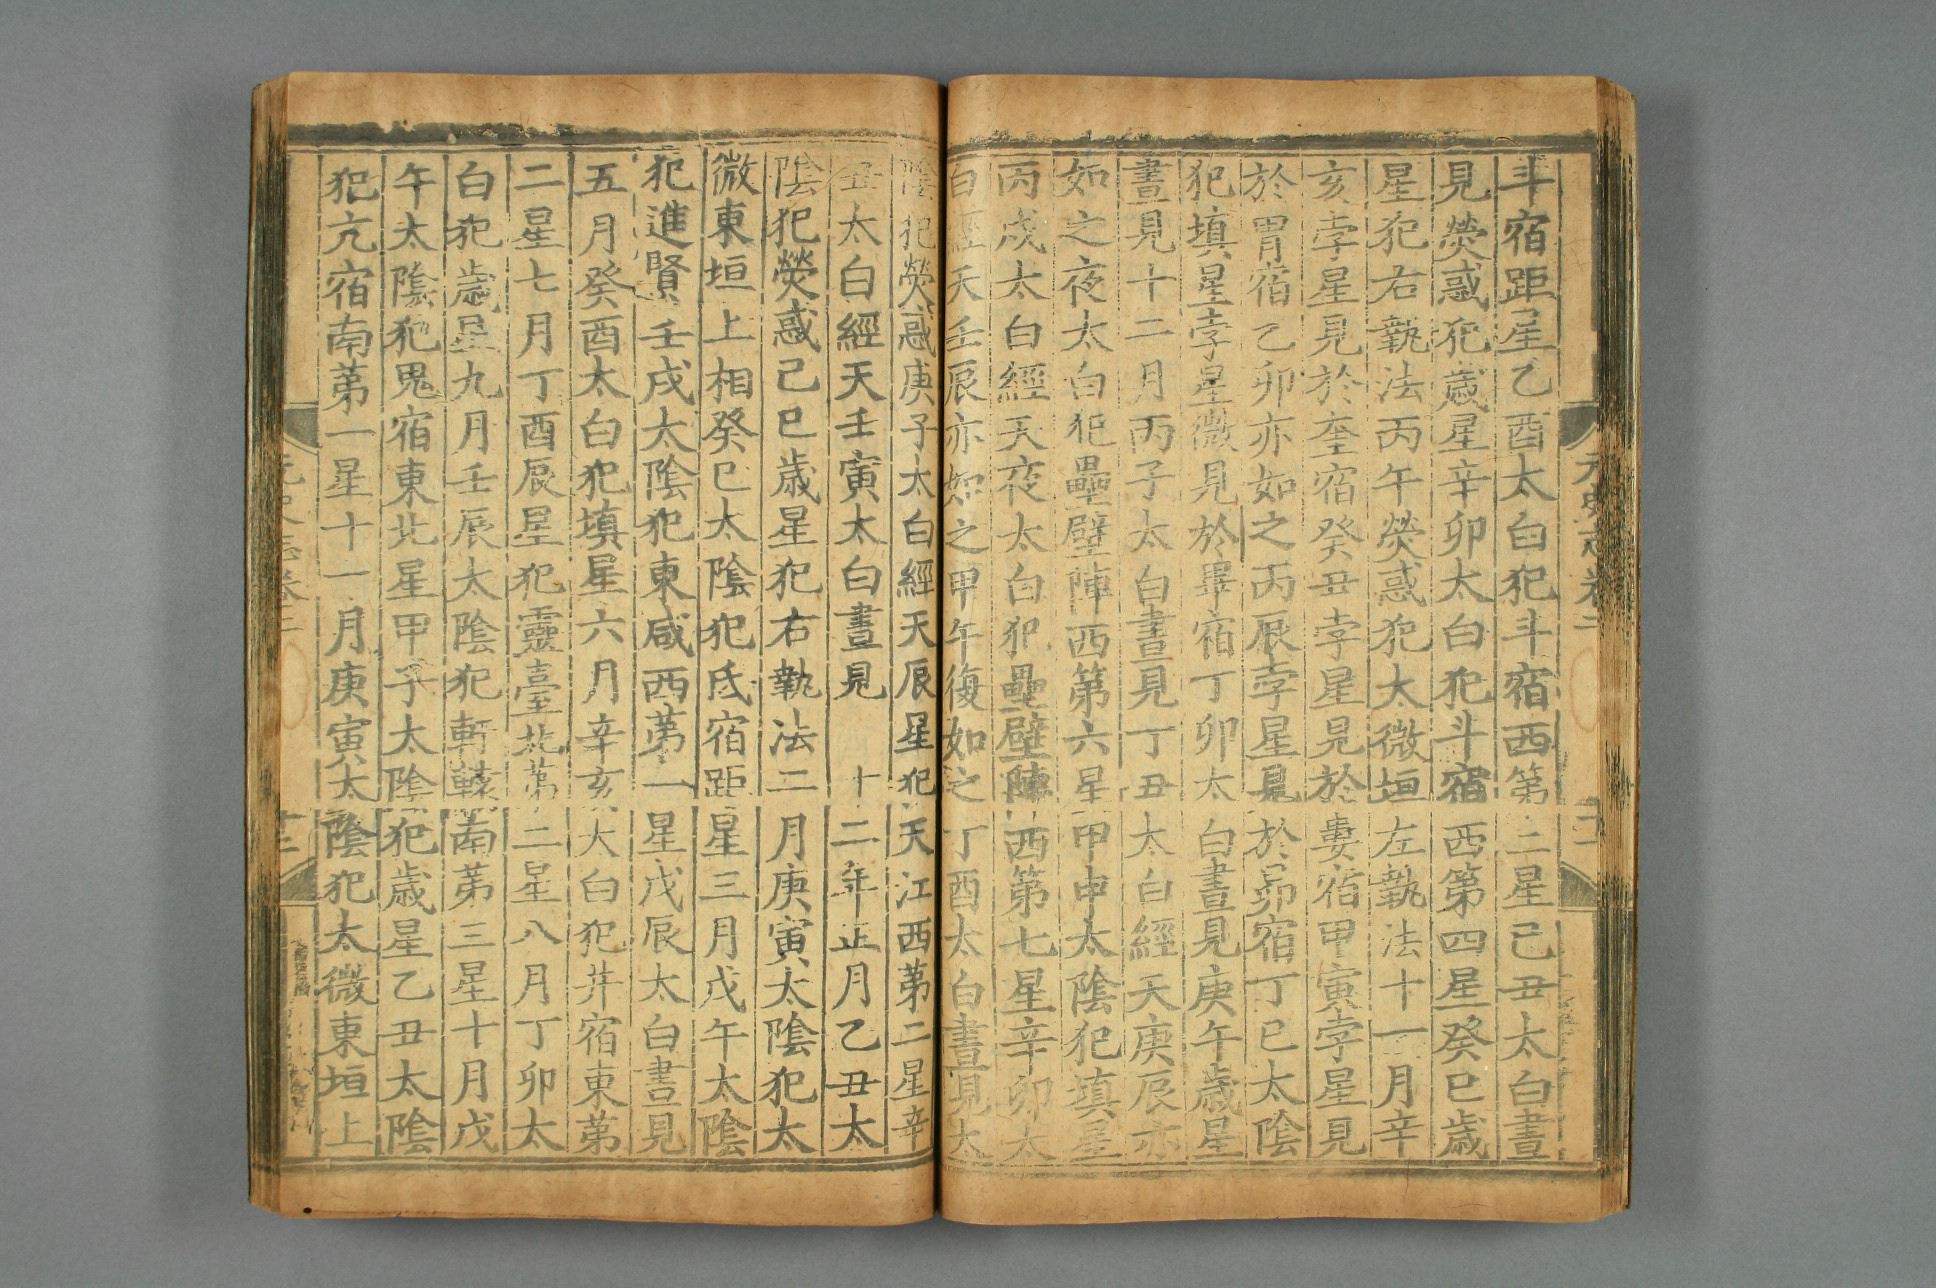 斗宿距星乙酉太白犯斗宿西第二星己丑太白晝
見熒惑犯歲星辛卯太白犯斗宿西第四星癸巳歲
星犯右執法丙午熒惑犯太微垣左執法十一月辛
亥孛星見於奎宿癸丑孛星見於婁宿甲寅孛星見
於胃宿乙卯亦如之丙辰孛星見於昴宿丁巳太陰
犯填星孛星微見於畢宿丁卯太白晝見庚午歲星
晝見十二月丙子太白晝見丁丑太白經天庚辰亦
如之夜太白犯壘壁陣西第六星甲申太陰犯填星
丙戌太白經天夜太白犯壘壁陣西第七星辛卯太
白經天壬辰亦如之甲午復如之丁酉太白晝見太
陰犯熒惑庚子太白經天辰星犯天江西第二星辛
丑太白經天壬寅太白晝見 十二年正月乙丑太
陰犯熒惑己巳歲星犯右執法二月庚寅太陰犯太
微東垣上相癸巳太陰犯氐宿距星三月戊午太陰
犯進賢壬戌太陰犯東咸西第一星戊辰太白晝見
五月癸酉太白犯填星六月辛亥太白犯井宿東第
二星七月丁酉辰星犯靈臺北第二星八月丁卯太
白犯歲星九月壬辰太陰犯軒轅南第三星十月戊
午太陰犯鬼宿東北星甲子太陰犯歲星乙丑太陰
犯亢宿南第一星十一月庚寅太陰犯太微東垣上
元史志卷二